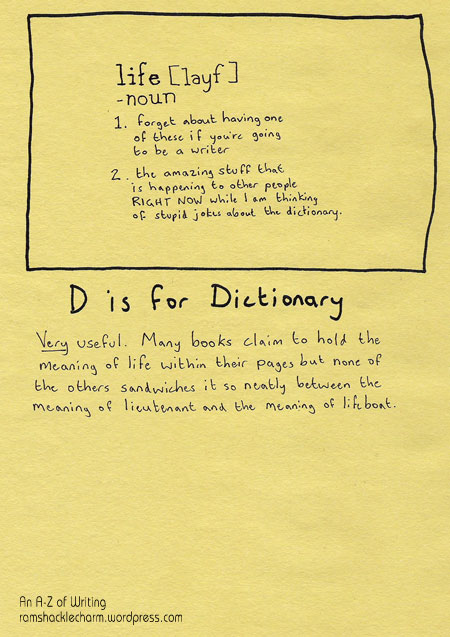 life [layf]
-noun
1. forget about having one
of these if you're going
to be a writer
2. the amazing stuff that
is happening to other people
RIGHT NOW while I am thinking
of stupid jokes about the dictionary.
D is for Dictionary
Very useful. Many books claim to hold the
meaning of life within their pages but none of
the others sandwiches it so neatly between the
meaning of lieutenant and the meaning of lifeboat.
An A-Z of Writing
ramshacklecharm.wordpress.com